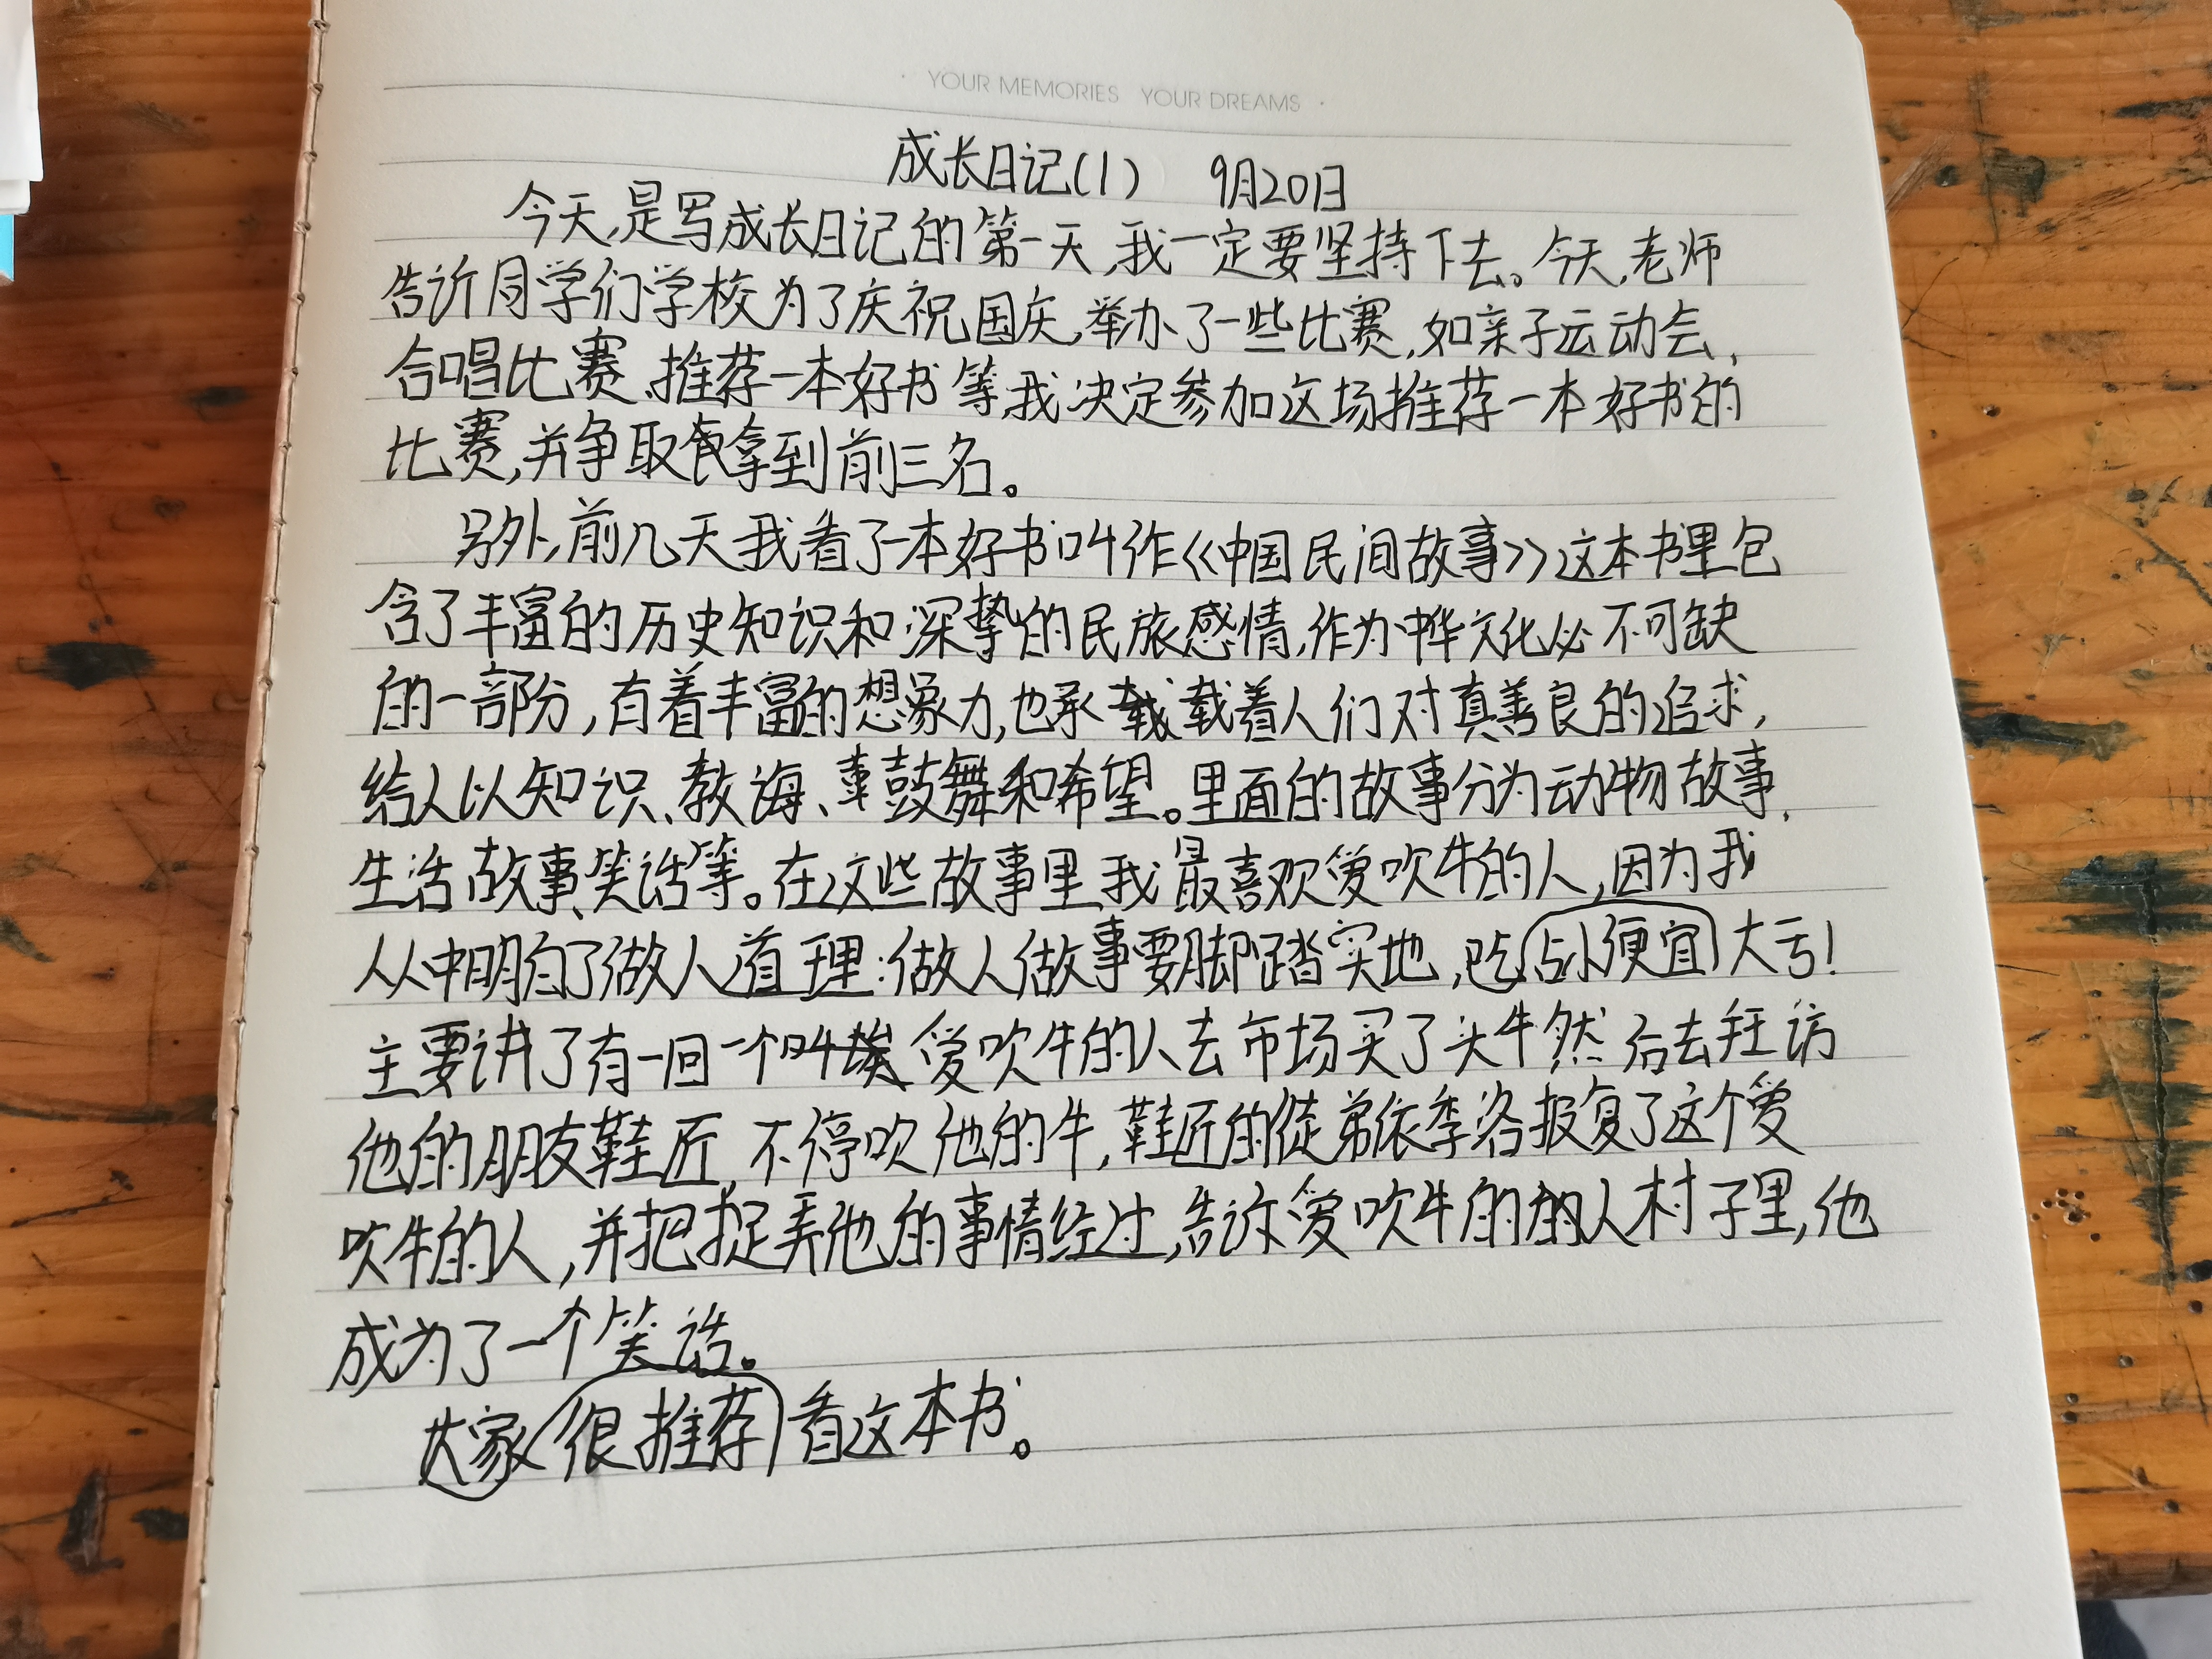 YOUR MEMORIES YOUR DREAMS
成长日记(1) 9月20日
今天,是写成长日记的第一天,我一定要坚持下去。今天,老师
告诉同学们学校为了庆祝国庆,举办了一些比赛,如亲子运动会、
合唱比赛、推荐一本好书等,我决定参加这场推荐一本好书的
比赛,并争取拿到前三名。
另外,前几天我看了一本好书叫作《中国民间故事》这本书里包
含了丰富的历史知识和深挚的民族感情,作为中华文化必不可缺
的一部份,有着丰富的想象力,也承载着人们对真善良的追求,
给人以知识、教诲、鼓舞和希望。里面的故事分为动物故事、
生活故事、笑话等。在这些故事里我最喜欢爱吹牛的人,因为我
从中明白了做人道理:做人做事要脚踏实地,吃占小便宜大亏!
主要讲了有一回一个叫爱吹牛的人去市场买了头牛然后去拜访
他的朋友鞋匠,不停吹他的牛,鞋匠的徒弟依季洛报复了这个爱
吹牛的人,并把捉弄他的事情经过,告诉爱吹牛的人村子里,他
成为了一个笑话。
大家很推荐看这本书。